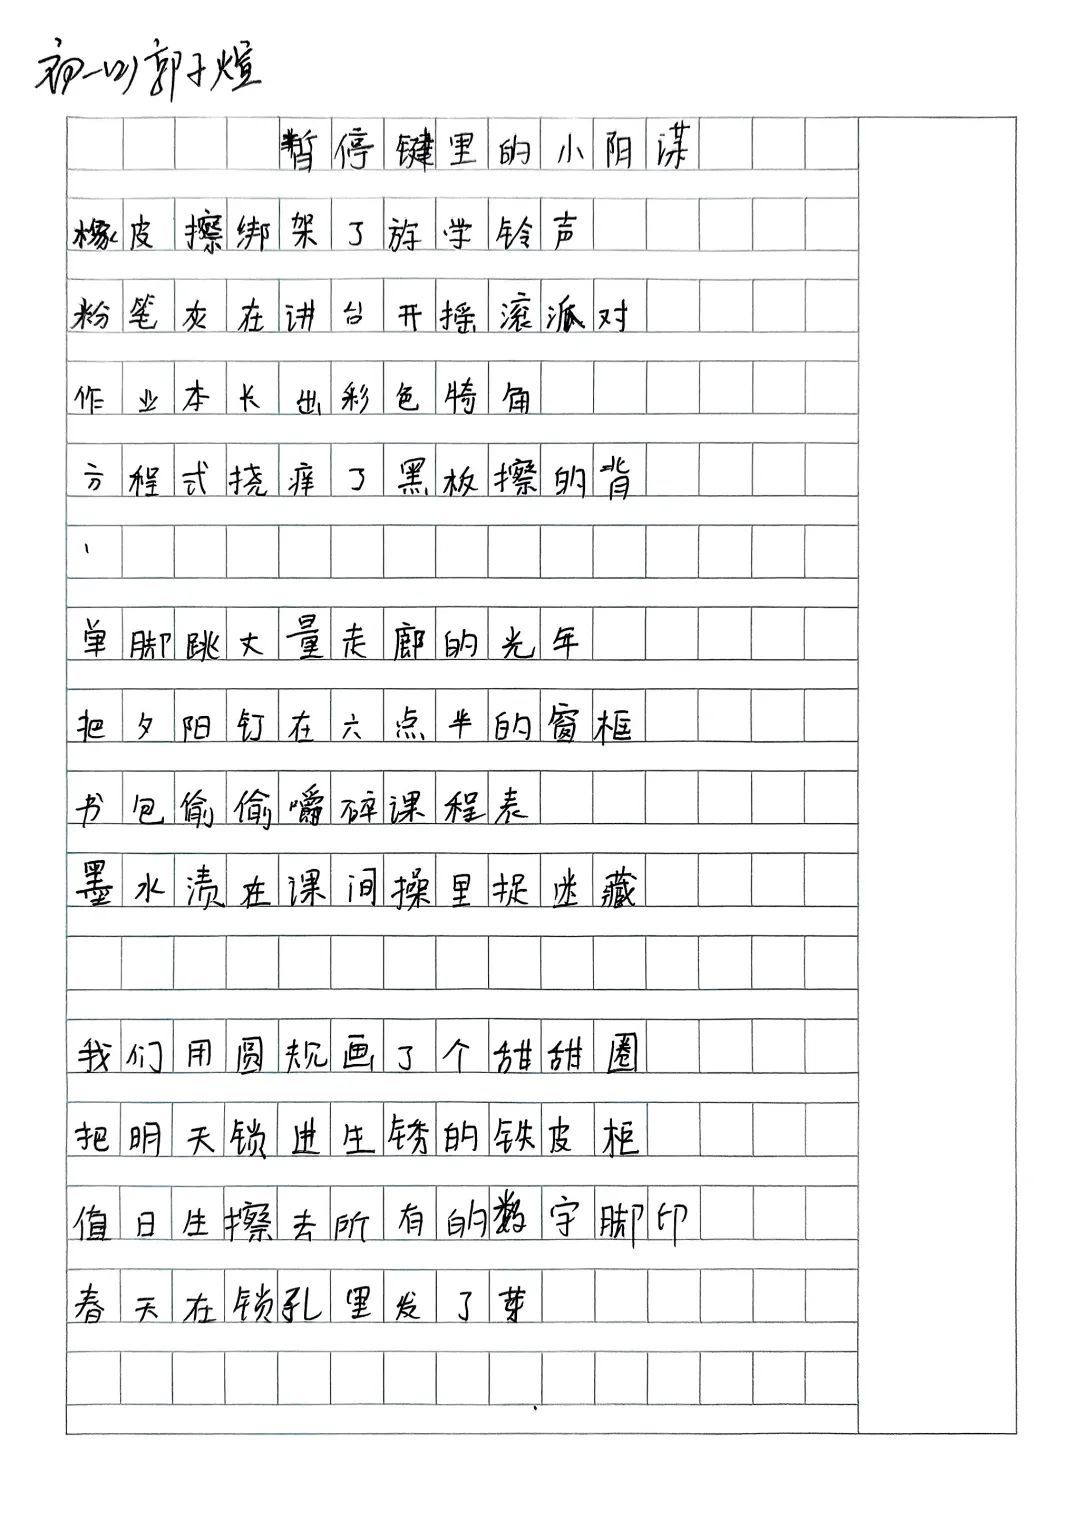 初一(2)郭子煊
暂停键里的小阳谋
橡皮擦绑架了放学铃声
粉笔灰在讲台开摇滚派对
作业本长出彩色犄角
方程式挠痒了黑板擦的背
单脚跳丈量走廊的光年
把夕阳钉在六点半的窗框
书包偷偷嚼碎课程表
墨水渍在课间操里捉迷藏
我们用圆规画了个甜甜圈
把明天锁进生锈的铁皮柜
值日生擦去所有的数字脚印
春天在锁孔里发了芽